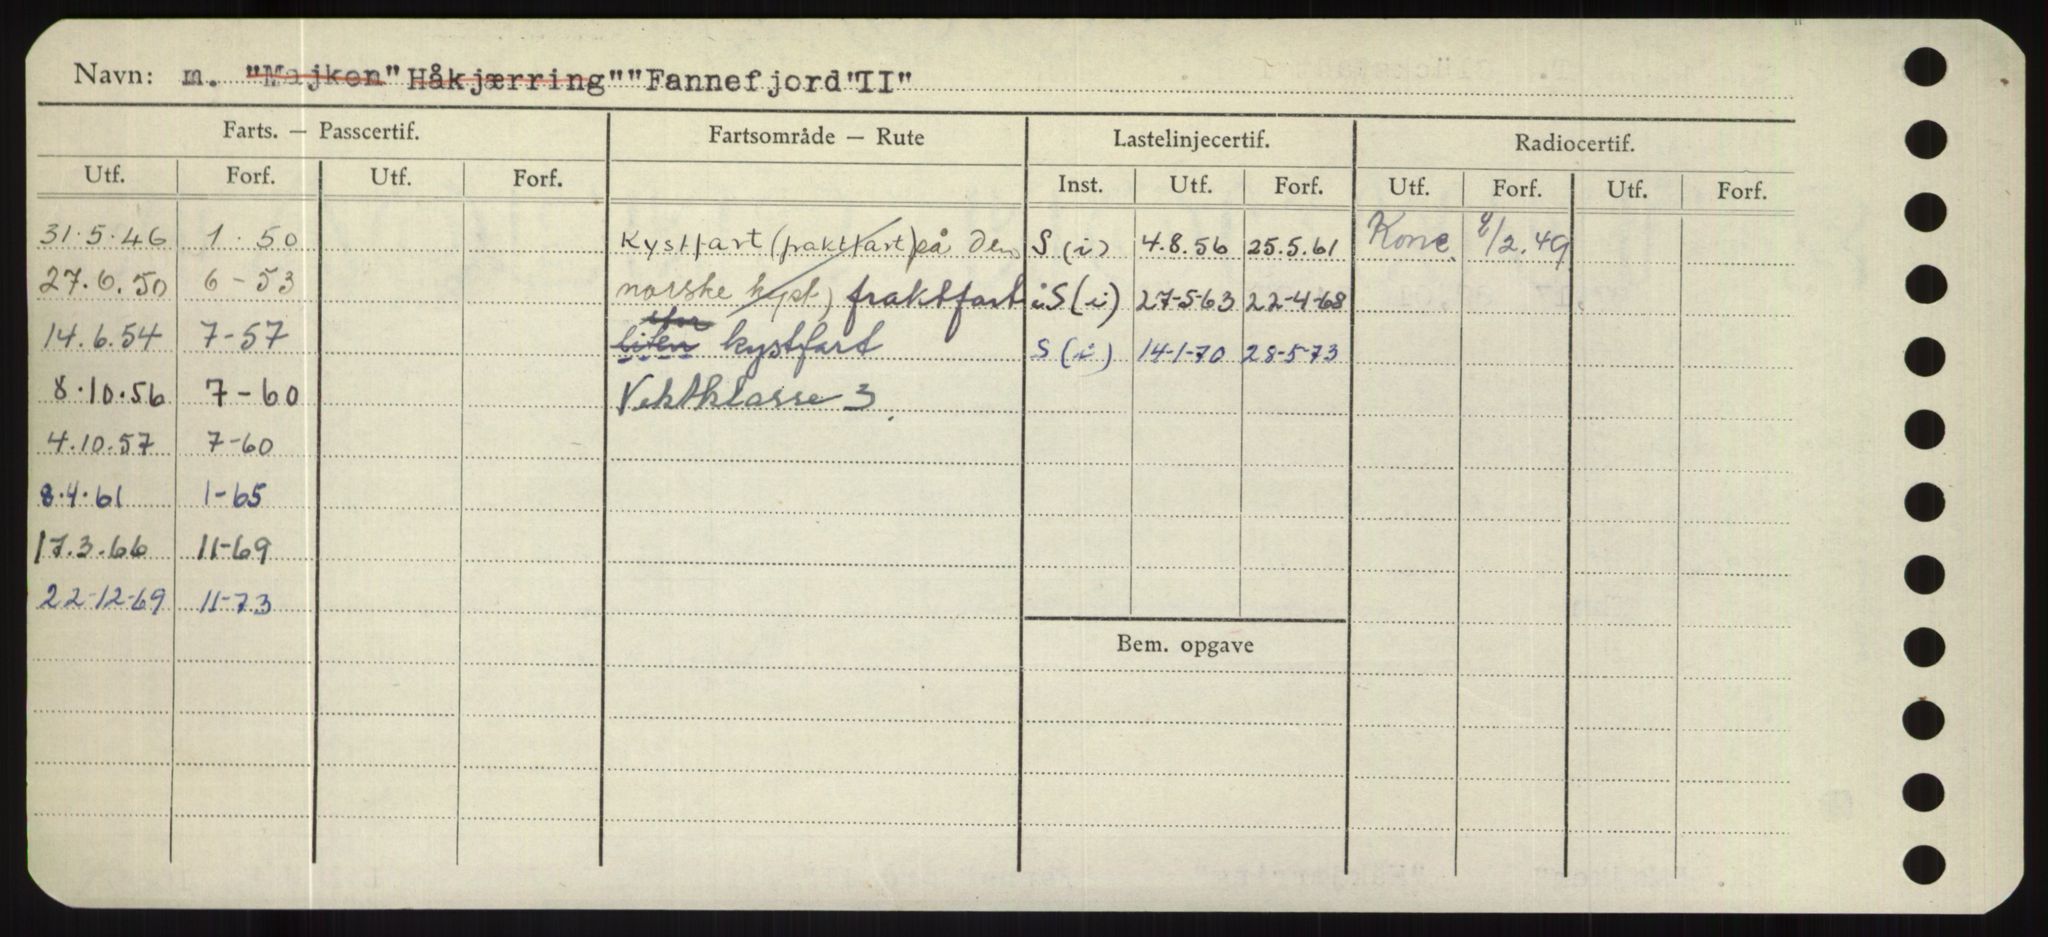 Navn: m. "Majken" Håkjærring" "Fannefjord"II"
Farts. — Passcertif. Fartsområde — Rute Lastelinjecertif. Radiocertif.
Utf. Forf. Utf. Forf. Inst. Utf. Forf. Utf. Forf. Utf. Forf.
31.5.46 1.50 Kystfart (fraktfart) på den S (i) 4.8.56 25.5.61 Konc. /2.49
27.6.50 6-53 norske kyst) fraktfart i S (i) 27-5-63 22-4-68
14.6.54 7-57 liten stor kystfart S (i) 14-1-70 28-5-73
8.10.56 7-60 Vektklasse 3.
4.10.57 7-60
8.4.61 1-65
17.3.66 11-69
22-12-69 11-73
Bem. opgave